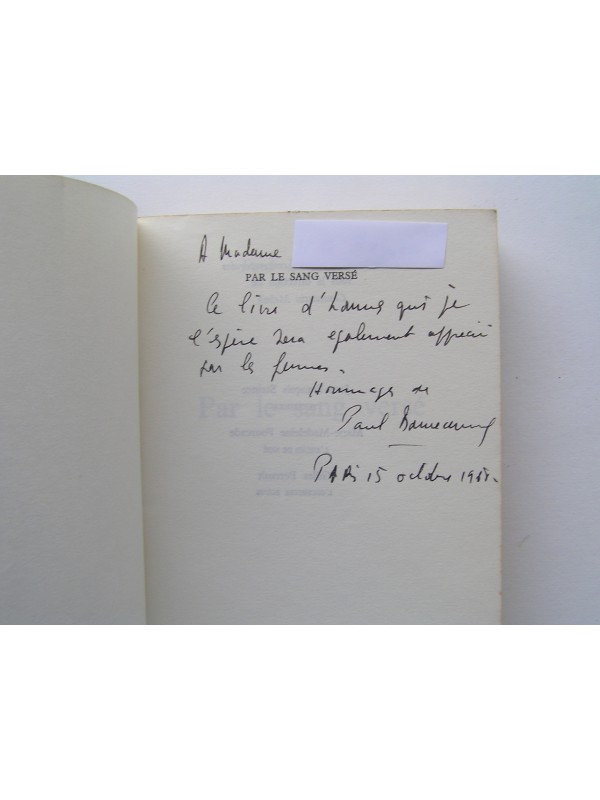 A Madame
PAR LE SANG VERSÉ
Ce livre d'hommes qui je
l'espère sera également apprécié
par les femmes.
Hommages de
Paul Bonnecarrère
Par le sang versé
PARIS 15 octobre 1968.